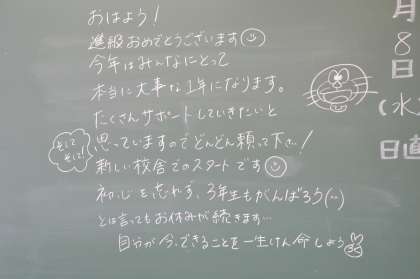 おはよう！
進級おめでとうございます
今年はみんなにとって
本当に大事な1年になります。
たくさんサポートしていきたいと
思っていますのでどんどん頼って下さい！
そして
そして!
新しい校舎でのスタートです
初心を忘れず、3年生もがんばろう(^^)
とは言ってもお休みが続きます…
自分が今、できることを一生けん命しよう
月
8
日
(水
日直